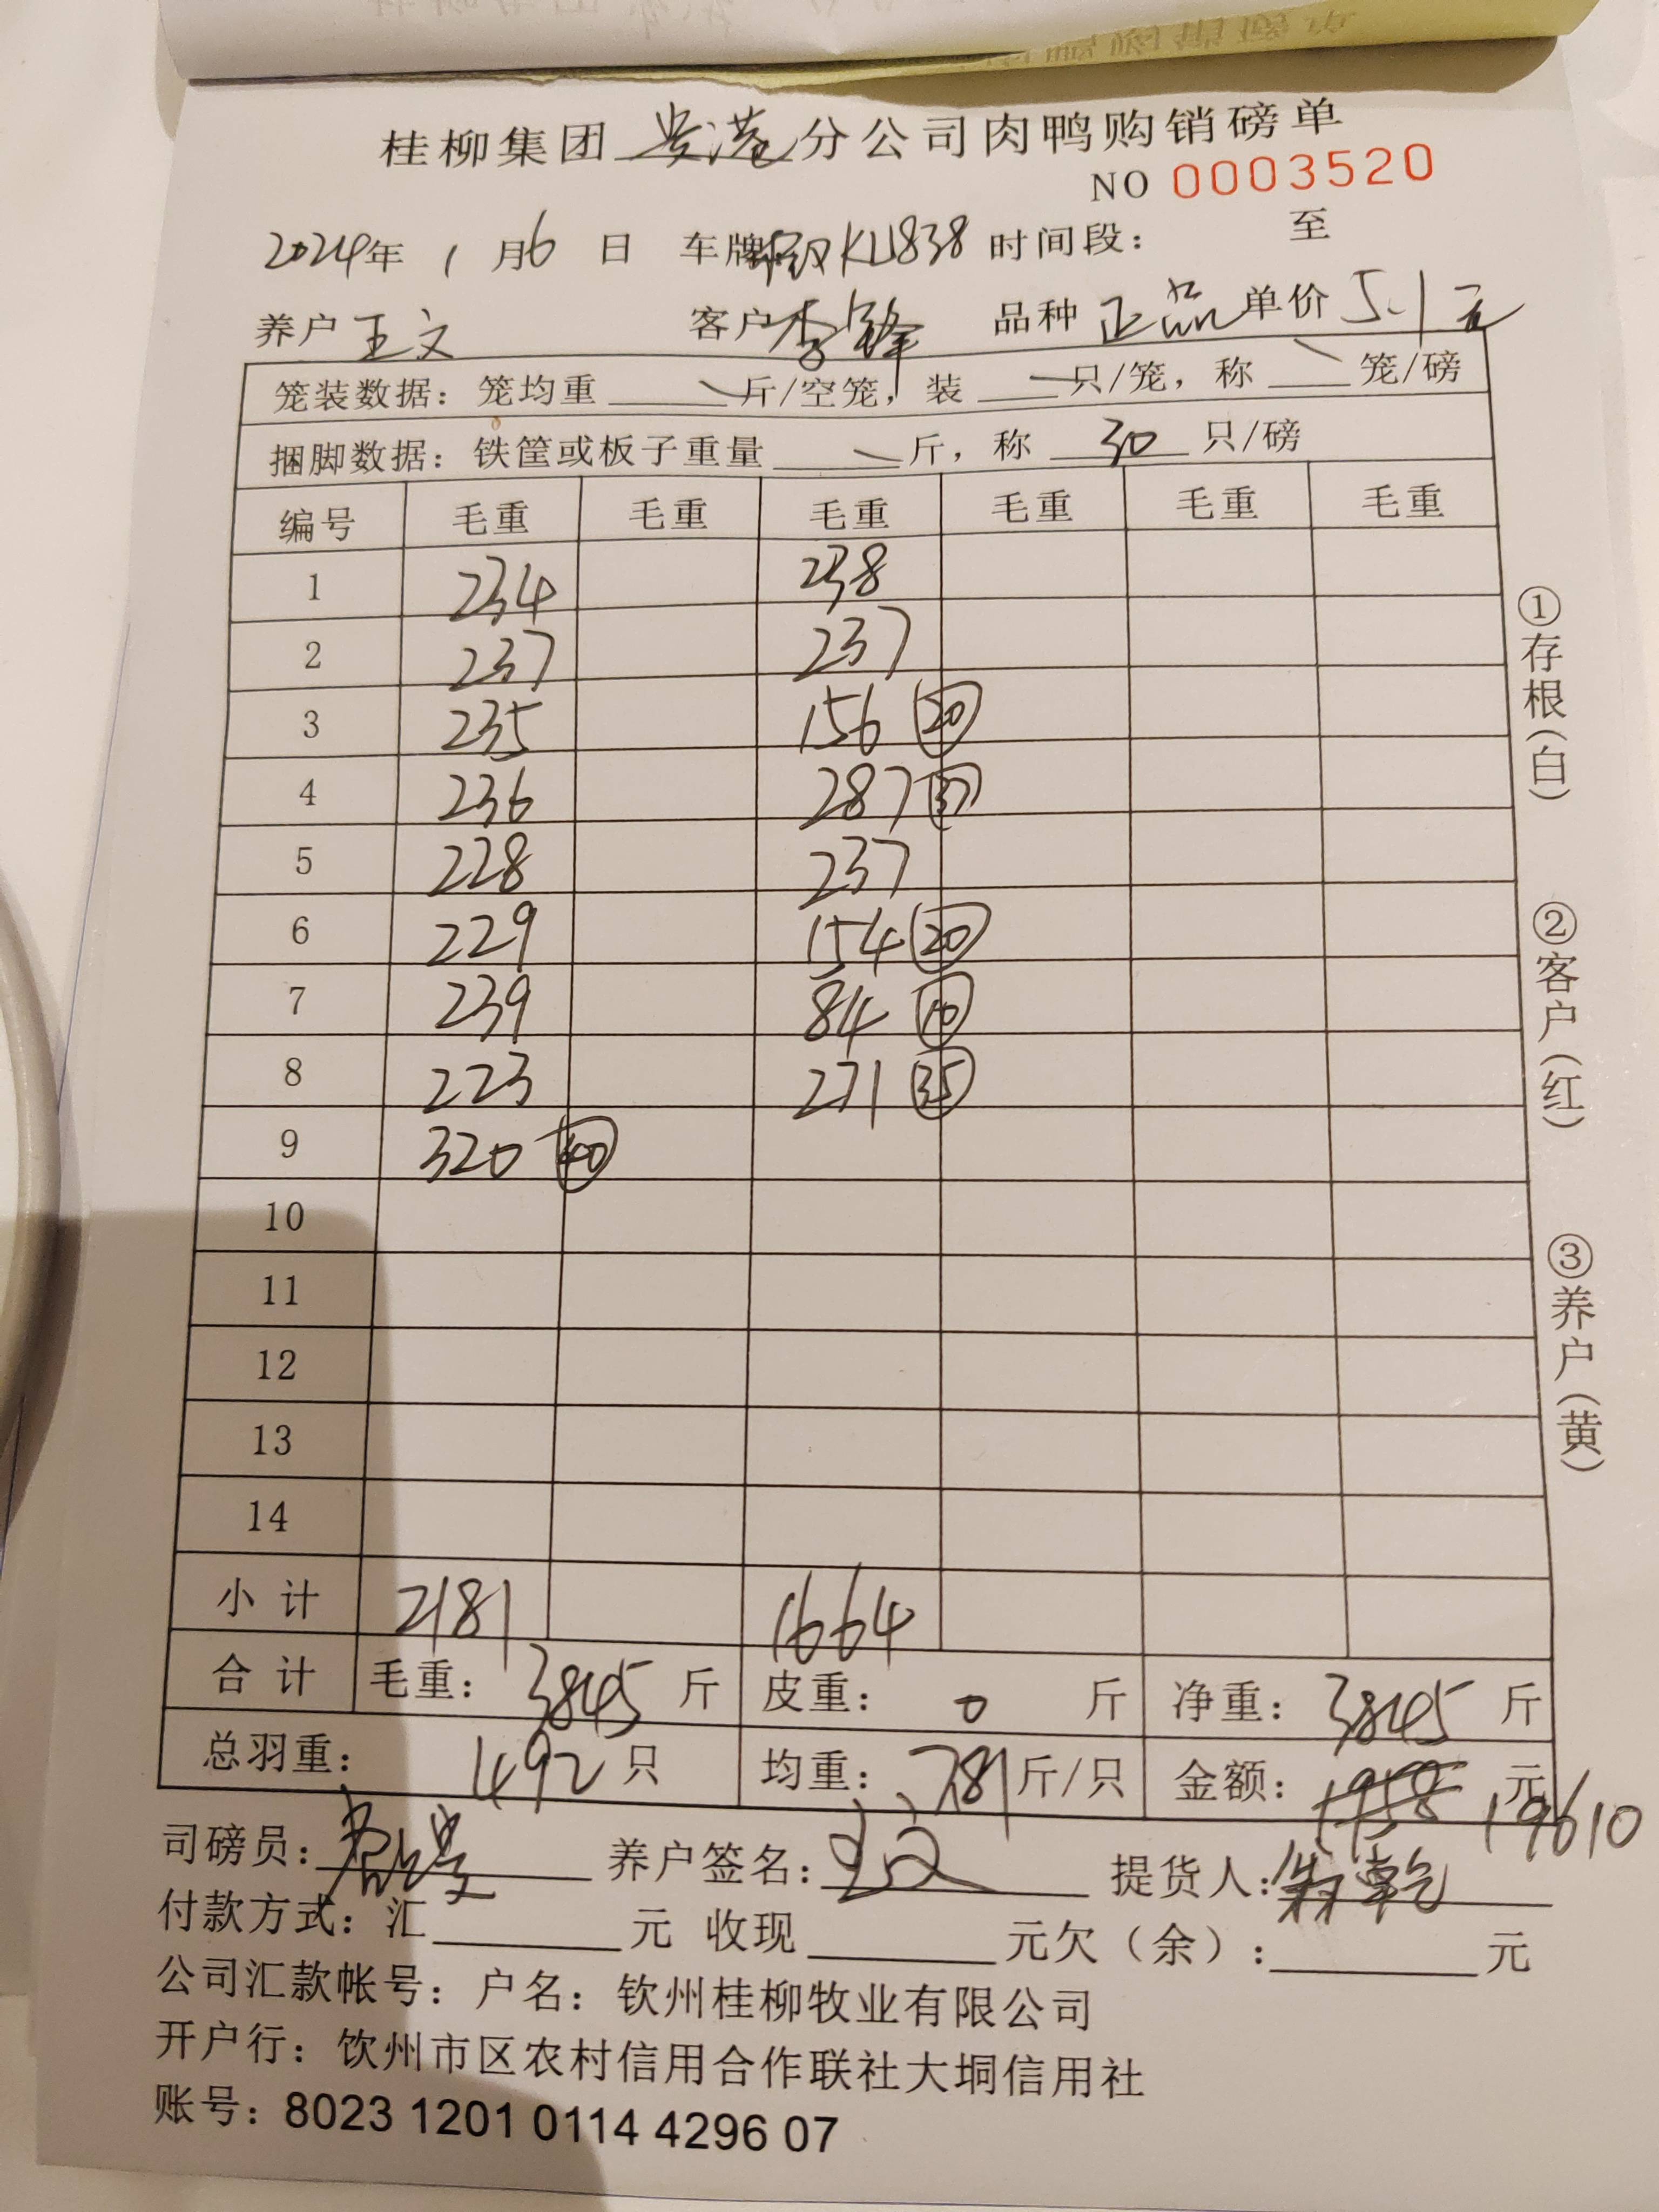 桂柳集团 贵港 分公司肉鸭购销磅单
NO 0003520
2024年 1 月6 日 车牌 KU838 时间段： 至
养户 王文 客户 李锋 品种 正品 单价 5.1元
笼装数据：笼均重 斤/空笼，装 只/笼，称 笼/磅
捆脚数据：铁筐或板子重量 斤，称 30 只/磅
编号 毛重 毛重 毛重 毛重 毛重 毛重
1 234 238
2 237 237
3 235 156 20
4 236 287 37
5 228 237
6 229 154 20
7 239 84 10
8 223 271 35
9 320 40
10
11
12
13
14
小计 2181 1664
合计 毛重： 3845 斤 皮重： 0 斤 净重： 3845 斤
总羽重： 492 只 均重： 7.81 斤/只 金额： 元 19610
司磅员： 养户签名：王文 提货人：
付款方式：汇 元 收现 元欠（余）： 元
公司汇款帐号：户名：钦州桂柳牧业有限公司
开户行：饮州市区农村信用合作联社大垌信用社
账号：8023 1201 0114 4296 07
①存根（白）
②客户（红）
③养户（黄）